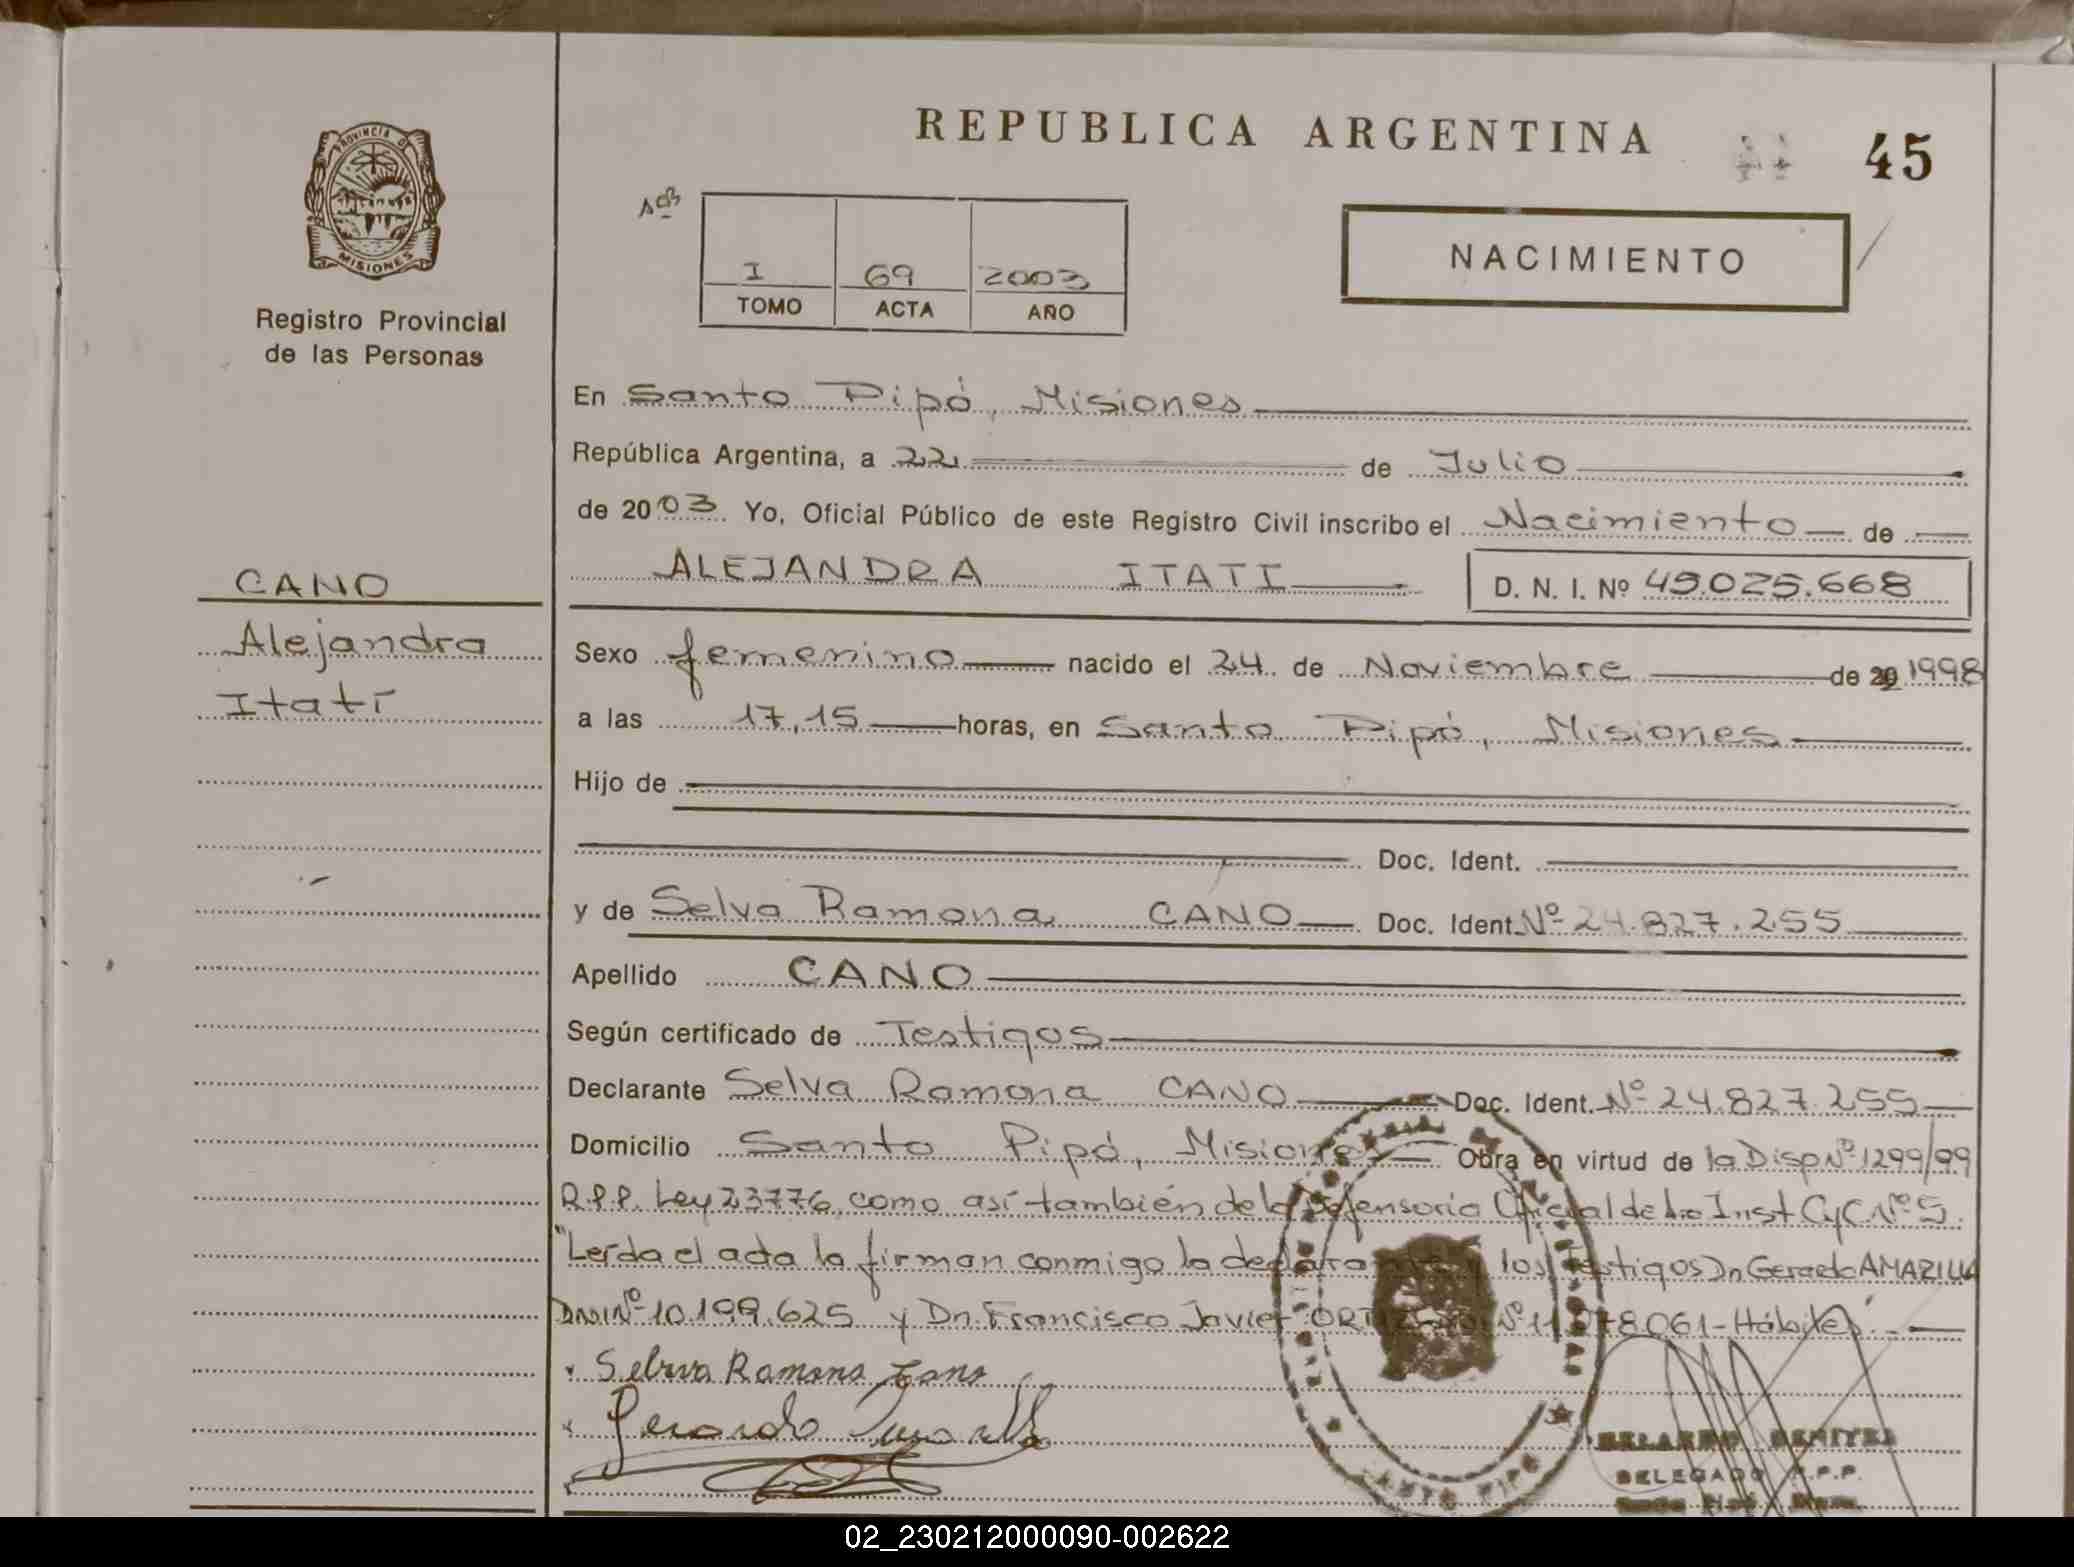 REPUBLICA ARGENTINA
45
PROVINCIA DE
MISIONES
Registro Provincial
de las Personas
I 69 2003
TOMO ACTA AÑO
NACIMIENTO
En Santo Pipó, Misiones
República Argentina, a 22 de Julio
de 2003. Yo, Oficial Público de este Registro Civil inscribo el Nacimiento de
ALEJANDRA ITATI D. N. I. Nº 49.025.668
CANO
Alejandra
Itatí
Sexo femenino nacido el 24 de Noviembre de 20 1998
a las 17,15 horas, en Santo Pipó, Misiones
Hijo de
Doc. Ident.
y de Selva Ramona CANO Doc. Ident. Nº 24.827.255
Apellido CANO
Según certificado de Testigos
Declarante Selva Ramona CANO Doc. Ident. Nº 24.827.255
Domicilio Santo Pipó, Misiones Obra en virtud de la Disp Nº 1299/99
R.P.P. Ley 23776, como así también de la Defensoria Oficial de Inst CyC Nº 5.
"Leída el acta la firman conmigo la declarante y los testigos Dn Gerardo AMARILLA
DNI Nº 10.199.625 y Dn. Francisco Javier Nº Hábiles.
Ramona Cano
Gerardo
SANTO PIPO
BENITEZ
DELEGADO R.P.P.
Santo Pipó
02_230212000090-002622